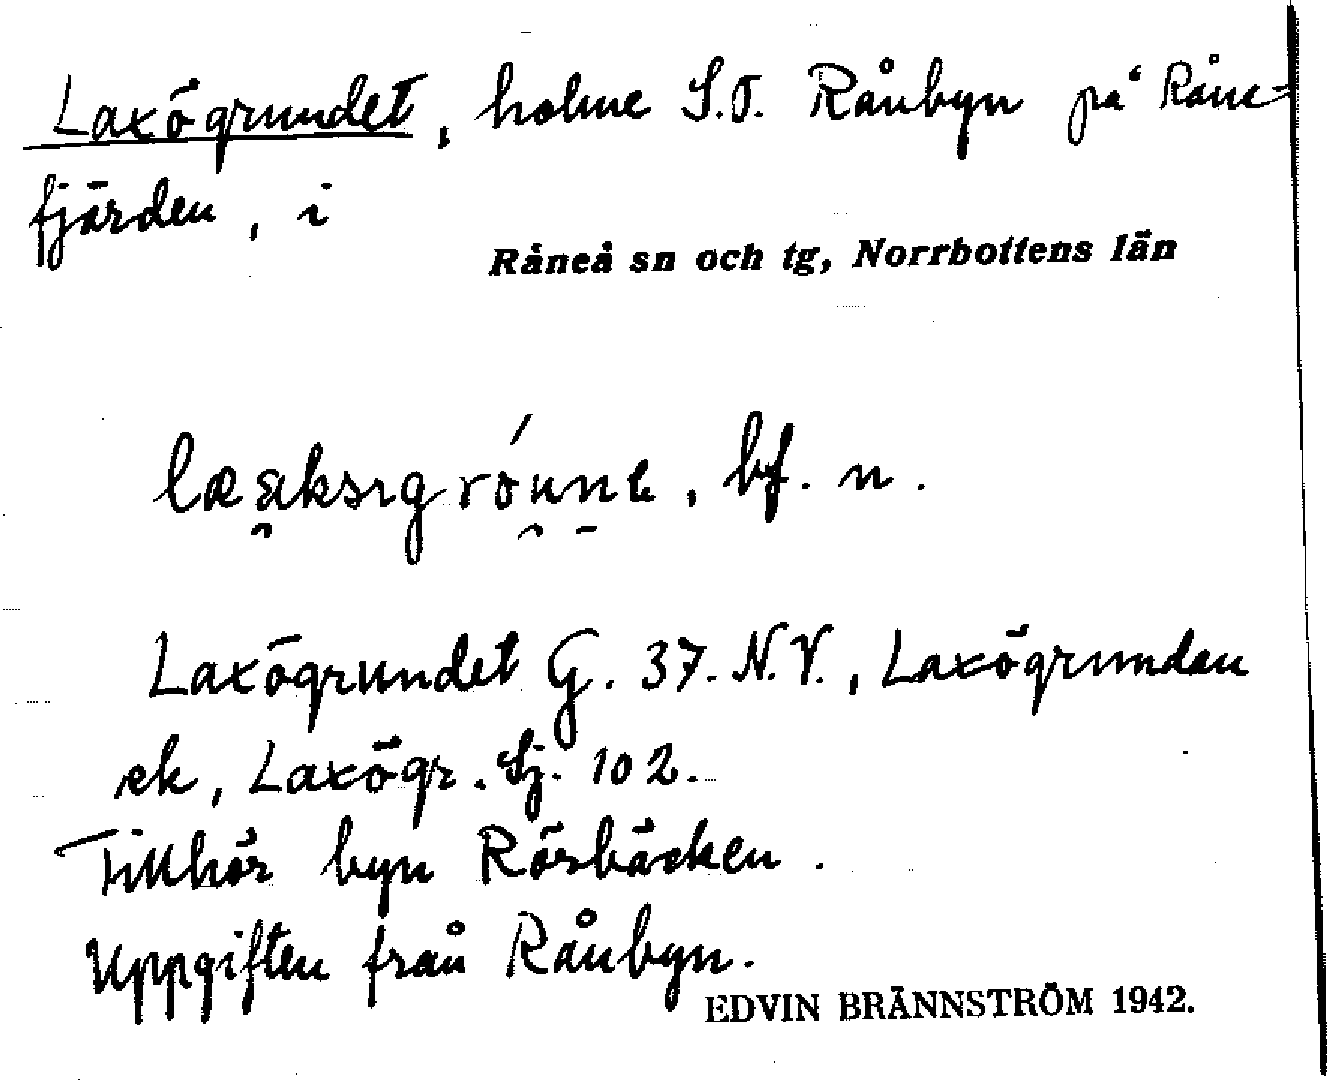 Laxögrundet, holme S.O. Rånbyn på Råne-
fjärden, i
Råneå sn och tg, Norrbottens län
bf. n.
Laxögrundet G. 37. N.V., Laxögrunden
ek, Laxögr. Sj. 102.
Tillhör byn Rörbäcken.
Uppgiften från Rånbyn.
EDVIN BRÄNNSTRÖM 1942.